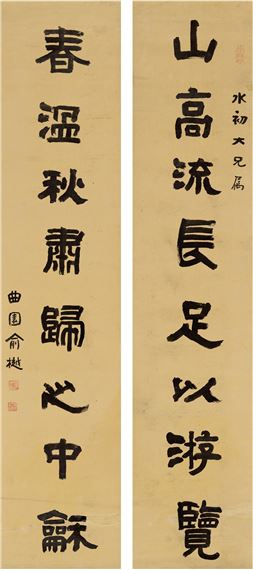 水初大兄属
山高流長足以游覽
春溫秋肅歸心中龢
曲園俞樾